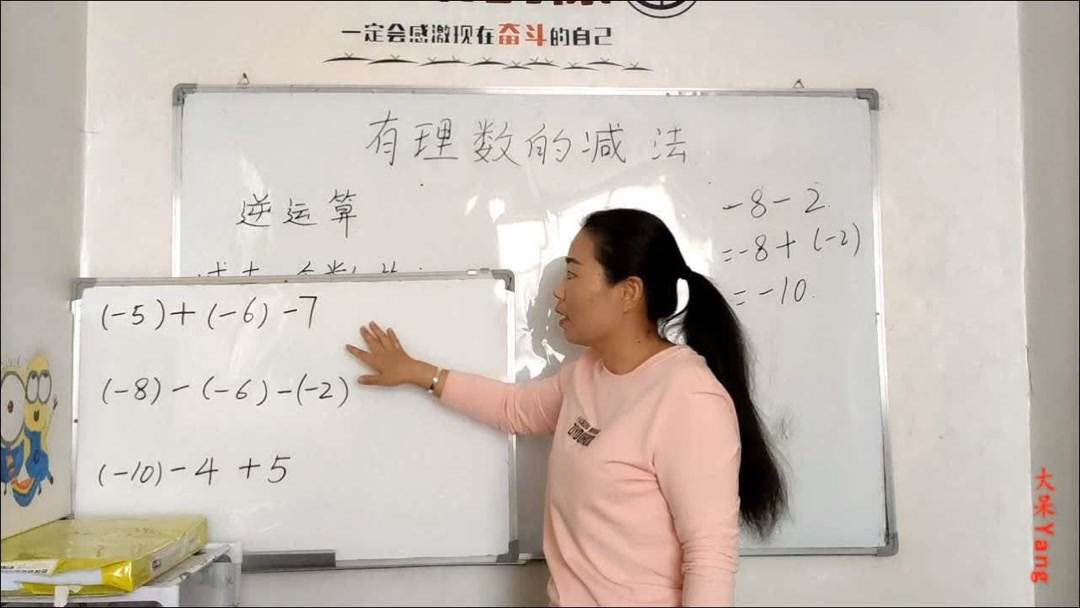 一定会感激现在奋斗的自己
有理数的减法
逆运算
-8-2
=-8+(-2)
=-10
(-5)+(-6)-7
(-8)-(-6)-(-2)
(-10)-4+5
大呆Yang